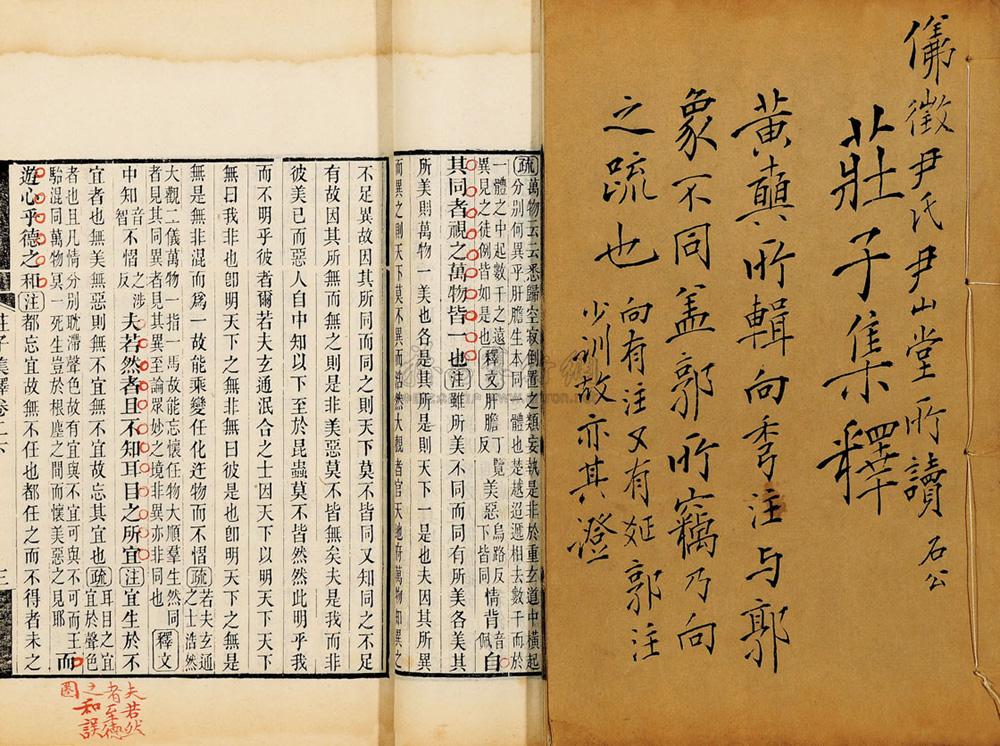 儀徵尹氏尹山堂所讀 石公
莊子集釋
黃奭所輯向秀注与郭
象不同盖郭所竊乃向
之疏也
向有注又有
郭注
少訓故亦其
疏萬物云云悉歸空寂倒置之類妄執是非於重玄道中橫起
分別何異乎肝膽生本同一體也楚越迢遞相去數千而於
一體之中起數千之遠異見之徒例皆如是也釋文肝膽丁覽反美惡烏路反下皆同情背音佩自
其同者視之萬物皆一也注雖所美不同而同有所美各美其
所美則萬物一美也各是其所是則天下一是也夫因其所異
而異之則天下莫不異而浩然大觀者官天地府萬物知異之
不足異故因其所同而同之則天下莫不皆同又知同之不足
有故因其所無而無之則是非美惡莫不皆無矣夫是我而非
彼美己而惡人自中知以下至於昆蟲莫不皆然然此明乎我
而不明乎彼者爾若夫玄通泯合之士因天下以明天下天下
無曰我非也卽明天下之無非無曰彼是也卽明天下之無是
無是無非混而爲一故能乘變任化迕物而不慴疏若夫玄通之士浩然
大觀二儀萬物一指一馬故能忘懷任物大順羣生然同
者見其同異者見其異至論衆妙之境非異亦非同也釋文
中知音智不慴之涉反夫若然者且不知耳目之所宜注宜生於不
宜者也無美無惡則無不宜無不宜故忘其宜也疏耳目之宜宜於聲色
者也且凡情分別耽滯聲色故有宜與不宜可與不可而王
駘混同萬物冥一死生豈於根塵之間而懷美惡之見耶而
遊心乎德之和注都忘宜故無不任也都任之而不得者未之
莊子集釋卷二下
三
夫若然
者至德
之和誤
圈